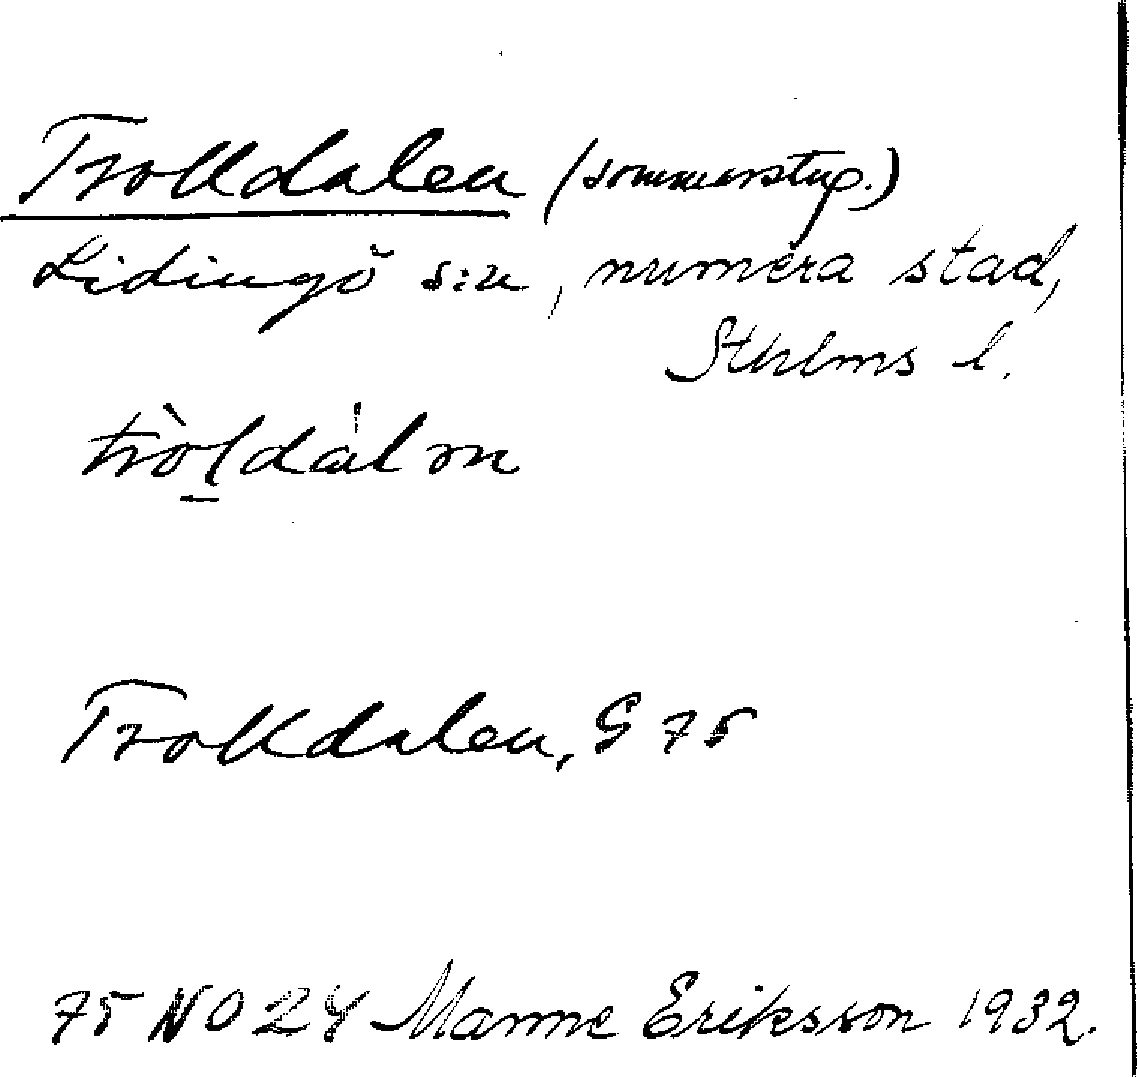 Trolldalen (sommarstug.)
Lidingö s:n, numera stad,
Sthlms l.
tròldál ən
Trolldalen, G 75
75 NO 24 Manne Eriksson 1932.